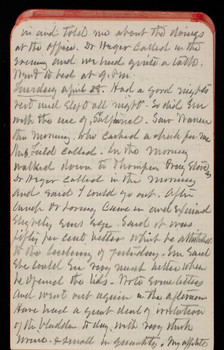 in and told me about the doings
at the office. Dr Wager called in the
evening and we had quite a talk.
Went to bed at 9 P.M.
Tuesday April 25. Had a good nights
rest and slept all night
with the use of Sulfonal. Saw Warner
this morning. Who cashed a check for me
Mr Field called. In the morning
walked down to Thompson Drug Store
Dr Wager called in the morning
and said I could go out. After
lunch Dr Loring came in and examined
my eyes. Said it was
fifty per cent better which he attributed
to the of yesterday. Em said
she could see very much better when
he opened the lids. Wrote some letters
and went out again in the afternoon
Have had a great deal of irritation
of the bladder to day, with very thick
urine & small in quantity. My appetite